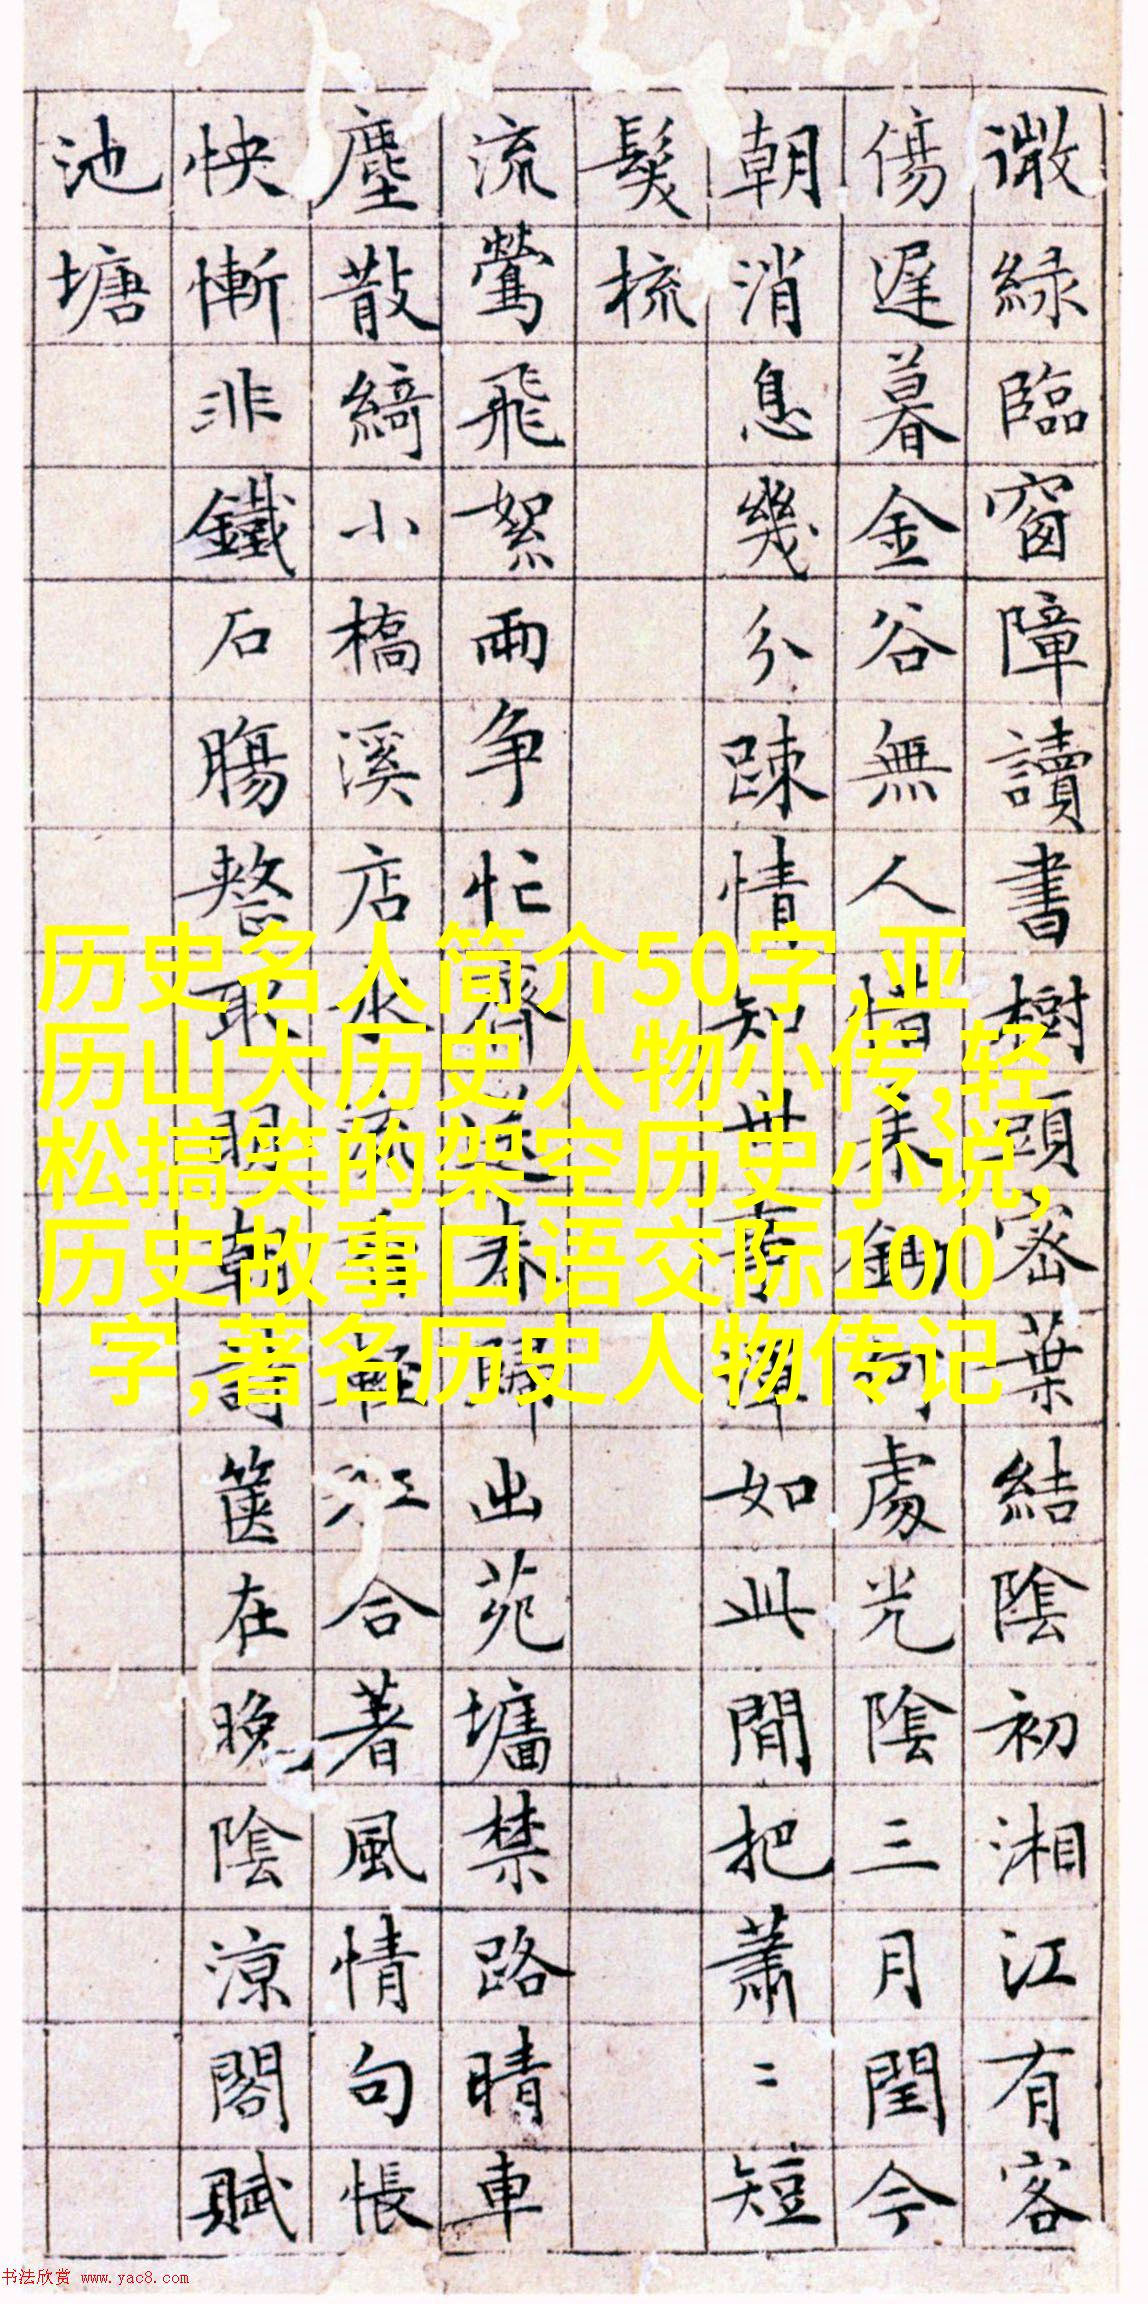 微綠臨窗障讀書樹頭密葉結陰初湘江有客
傷遲暮金谷無人惜處光陰三月閏今
朝消息幾分疎情知世事如此閒把蕭〻短
髮梳
流鶯飛絮兩争忙齊春歸出苑墻禁路晴車
塵散綺小橋溪店水合著風情句悵
怏慚非鐵石腸取眼朝篋在晚陰涼閣賦
池塘
历史名人简介50字,亚
历山大历史人物小传,轻
松搞笑的架空历史小说,
历史故事口语交际100
字,著名历史人物传记
书法欣赏 www.yac8.com